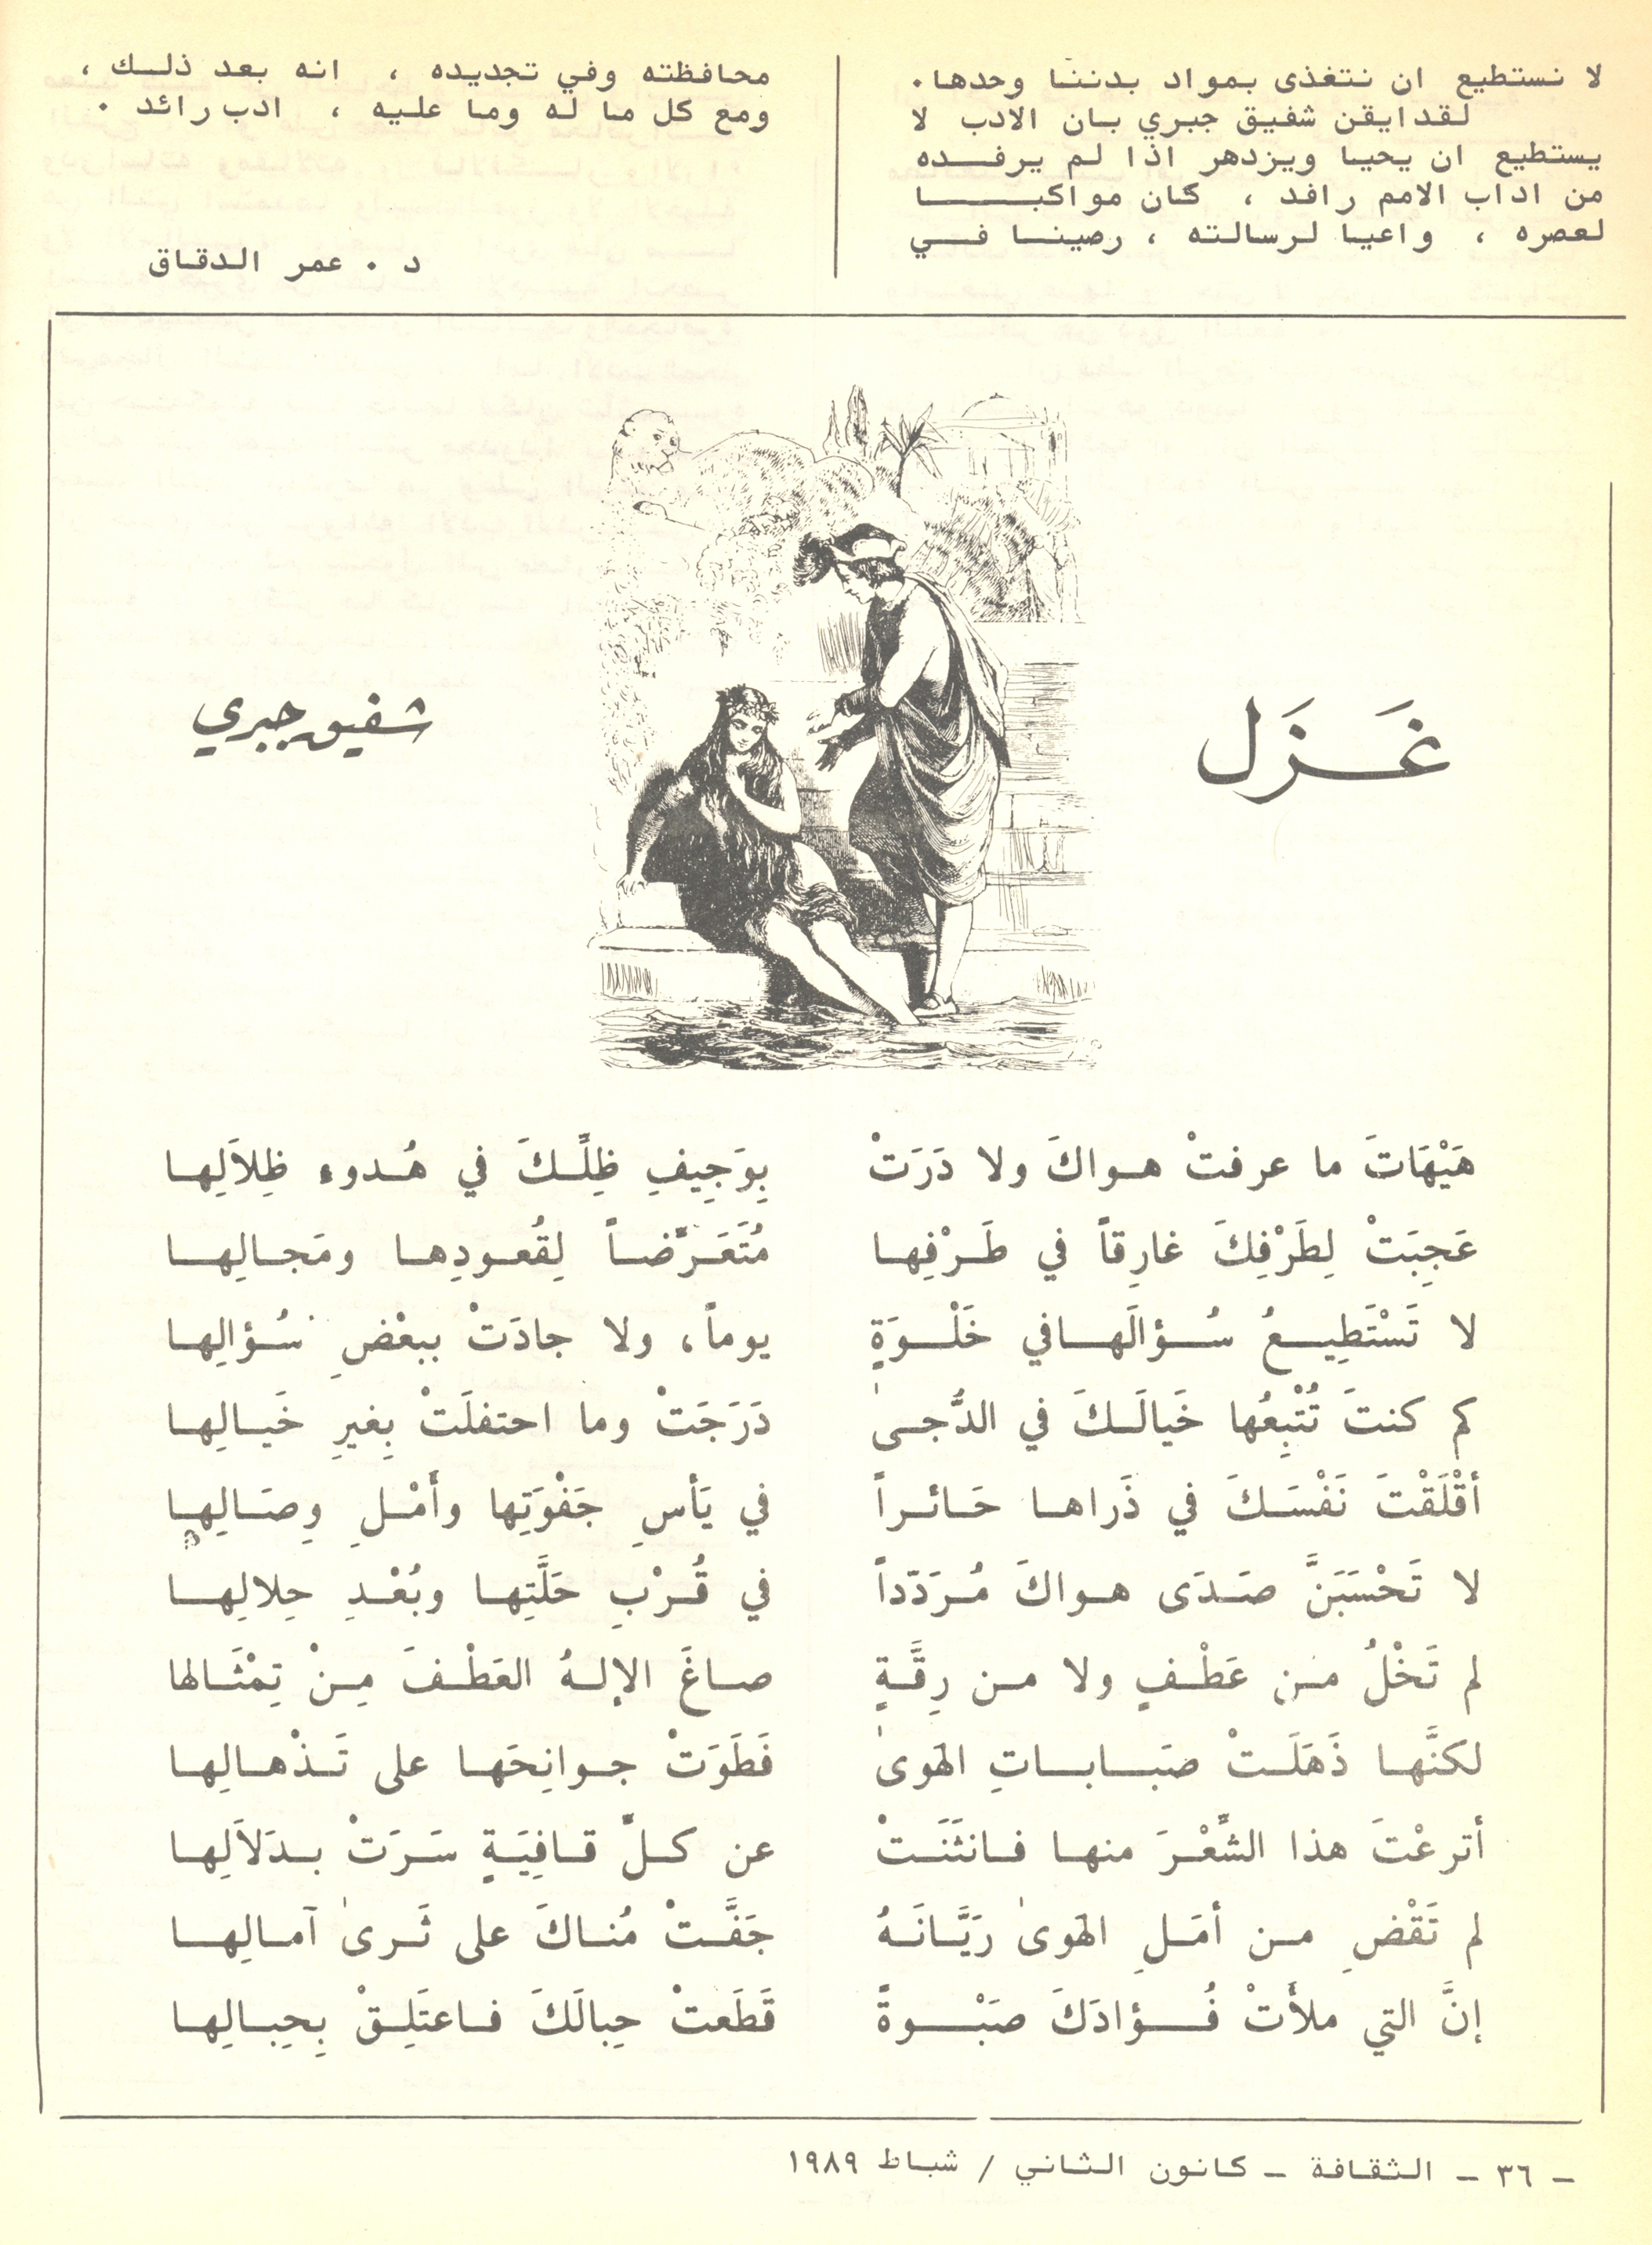 لا نستطيع ان نتغذى بمواد بدننا وحدها.
لقد ايقن شفيق جبري بان الادب لا
يستطيع ان يحيا ويزدهر اذا لم يرفده
من اداب الامم رافد ، كان مواكبا
لعصره ، واعيا لرسالته ، رصينا في
محافظته وفي تجديده ، انه بعد ذلك ،
ومع كل ما له وما عليه ، ادب رائد .
د . عمر الدقاق
غَزَل
شفيق جبري
هَيْهَاتَ ما عرفتْ هواكَ ولا دَرَتْ بِوَجِيفِ ظِلِّكَ في هُدوء ظِلاَلِها
عَجِبَتْ لِطَرْفِكَ غارِقاً في طَرْفِها مُتَعَرِّضاً لِقُعودِها ومَجالِها
لا تَسْتَطِيعُ سُؤالَها في خَلْوَةٍ يوماً، ولا جادَتْ ببعْضِ سُؤالِها
كم كنتَ تُتْبِعُها خَيالَكَ في الدُّجىٰ دَرَجَتْ وما احتفلَتْ بِغيرِ خَيالِها
أقْلَقْتَ نَفْسَكَ في ذَراها حَائراً في يَأسِ جَفْوَتِها وأَمْلِ وِصَالِها
لا تَحْسَبَنَّ صَدَى هواكَ مُرَدّداً في قُرْبِ حَلَّتِها وبُعْدِ حِلالِها
لم تَخْلُ من عَطْفٍ ولا من رِقَّةٍ صاغَ الإلهُ العَطْفَ مِنْ تِمْثَالها
لكنَّها ذَهَلَتْ صَبَاباتِ الهَوىٰ فَطَوَتْ جوانِحَها على تَذْهالِها
أترعْتَ هذا الشِّعْرَ منها فانثَنَتْ عن كلِّ قافِيَةٍ سَرَتْ بدَلاَلِها
لم تَقْضِ من أمَلِ الهَوىٰ رَيَّانَهُ جَفَّتْ مُناكَ على ثَرىٰ آمالِها
إنَّ التي ملأَتْ فُؤادَكَ صَبْوةً قَطَعتْ حِبالَكَ فاعتَلِقْ بِحِبالِها
– ٣٦ – الثقافة – كانون الثاني / شباط ١٩٨٩